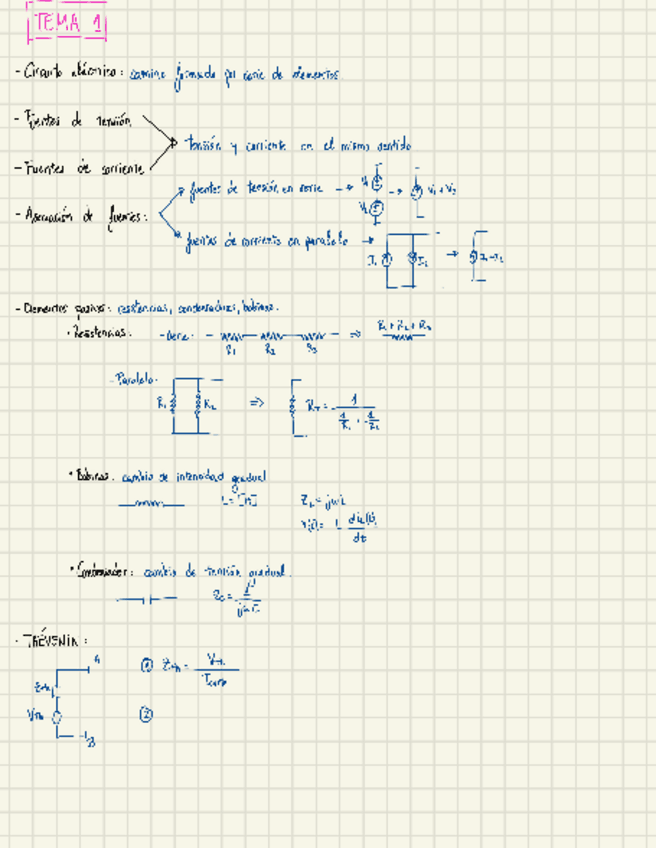 TEMA 1
- Circuito eléctrico: camino formado por serie de elementos
- Fuentes de tensión
tensión y corriente en el mismo sentido
- Fuentes de corriente
- Asociación de fuentes:
fuentes de tensión en serie → V1 V2 → V1 + V2
fuentes de corriente en paralelo → I1 I2 →
- Elementos pasivos: resistencias, condensadores, bobinas.
• Resistencias: - Serie: R1 R2 R3 ⇒ R1 + R2 + R3
- Paralelo: R1 R2 ⇒ RT = 1 / (1/R1 + 1/R2)
• Bobinas: cambio de intensidad gradual
L = [H] ZL = jωL
L diL(t) / dt
• Condensador: cambio de tensión gradual.
Zc = 1 / jωC
- THÉVENIN:
A
Zth ① Zth = Vth /
Vth ②
B